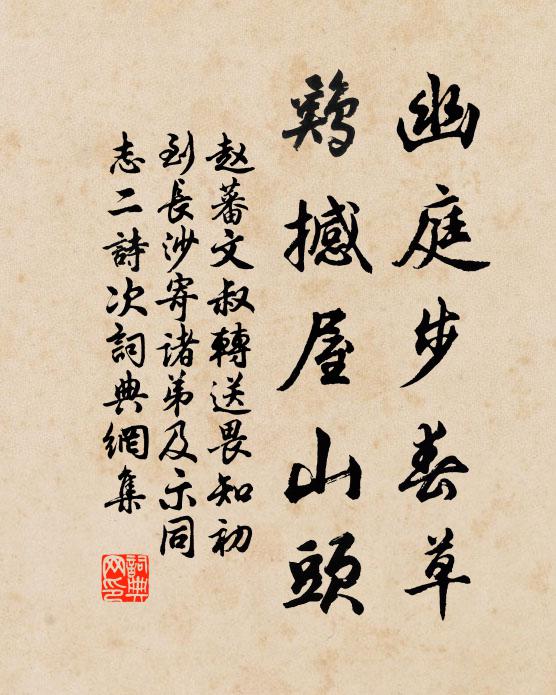 幽庭步春草
鷄撼屋山頭
赵蕃文叔轉送畏知初
到長沙寄諸弟及示同
志二詩次詞典網集
詞典网印